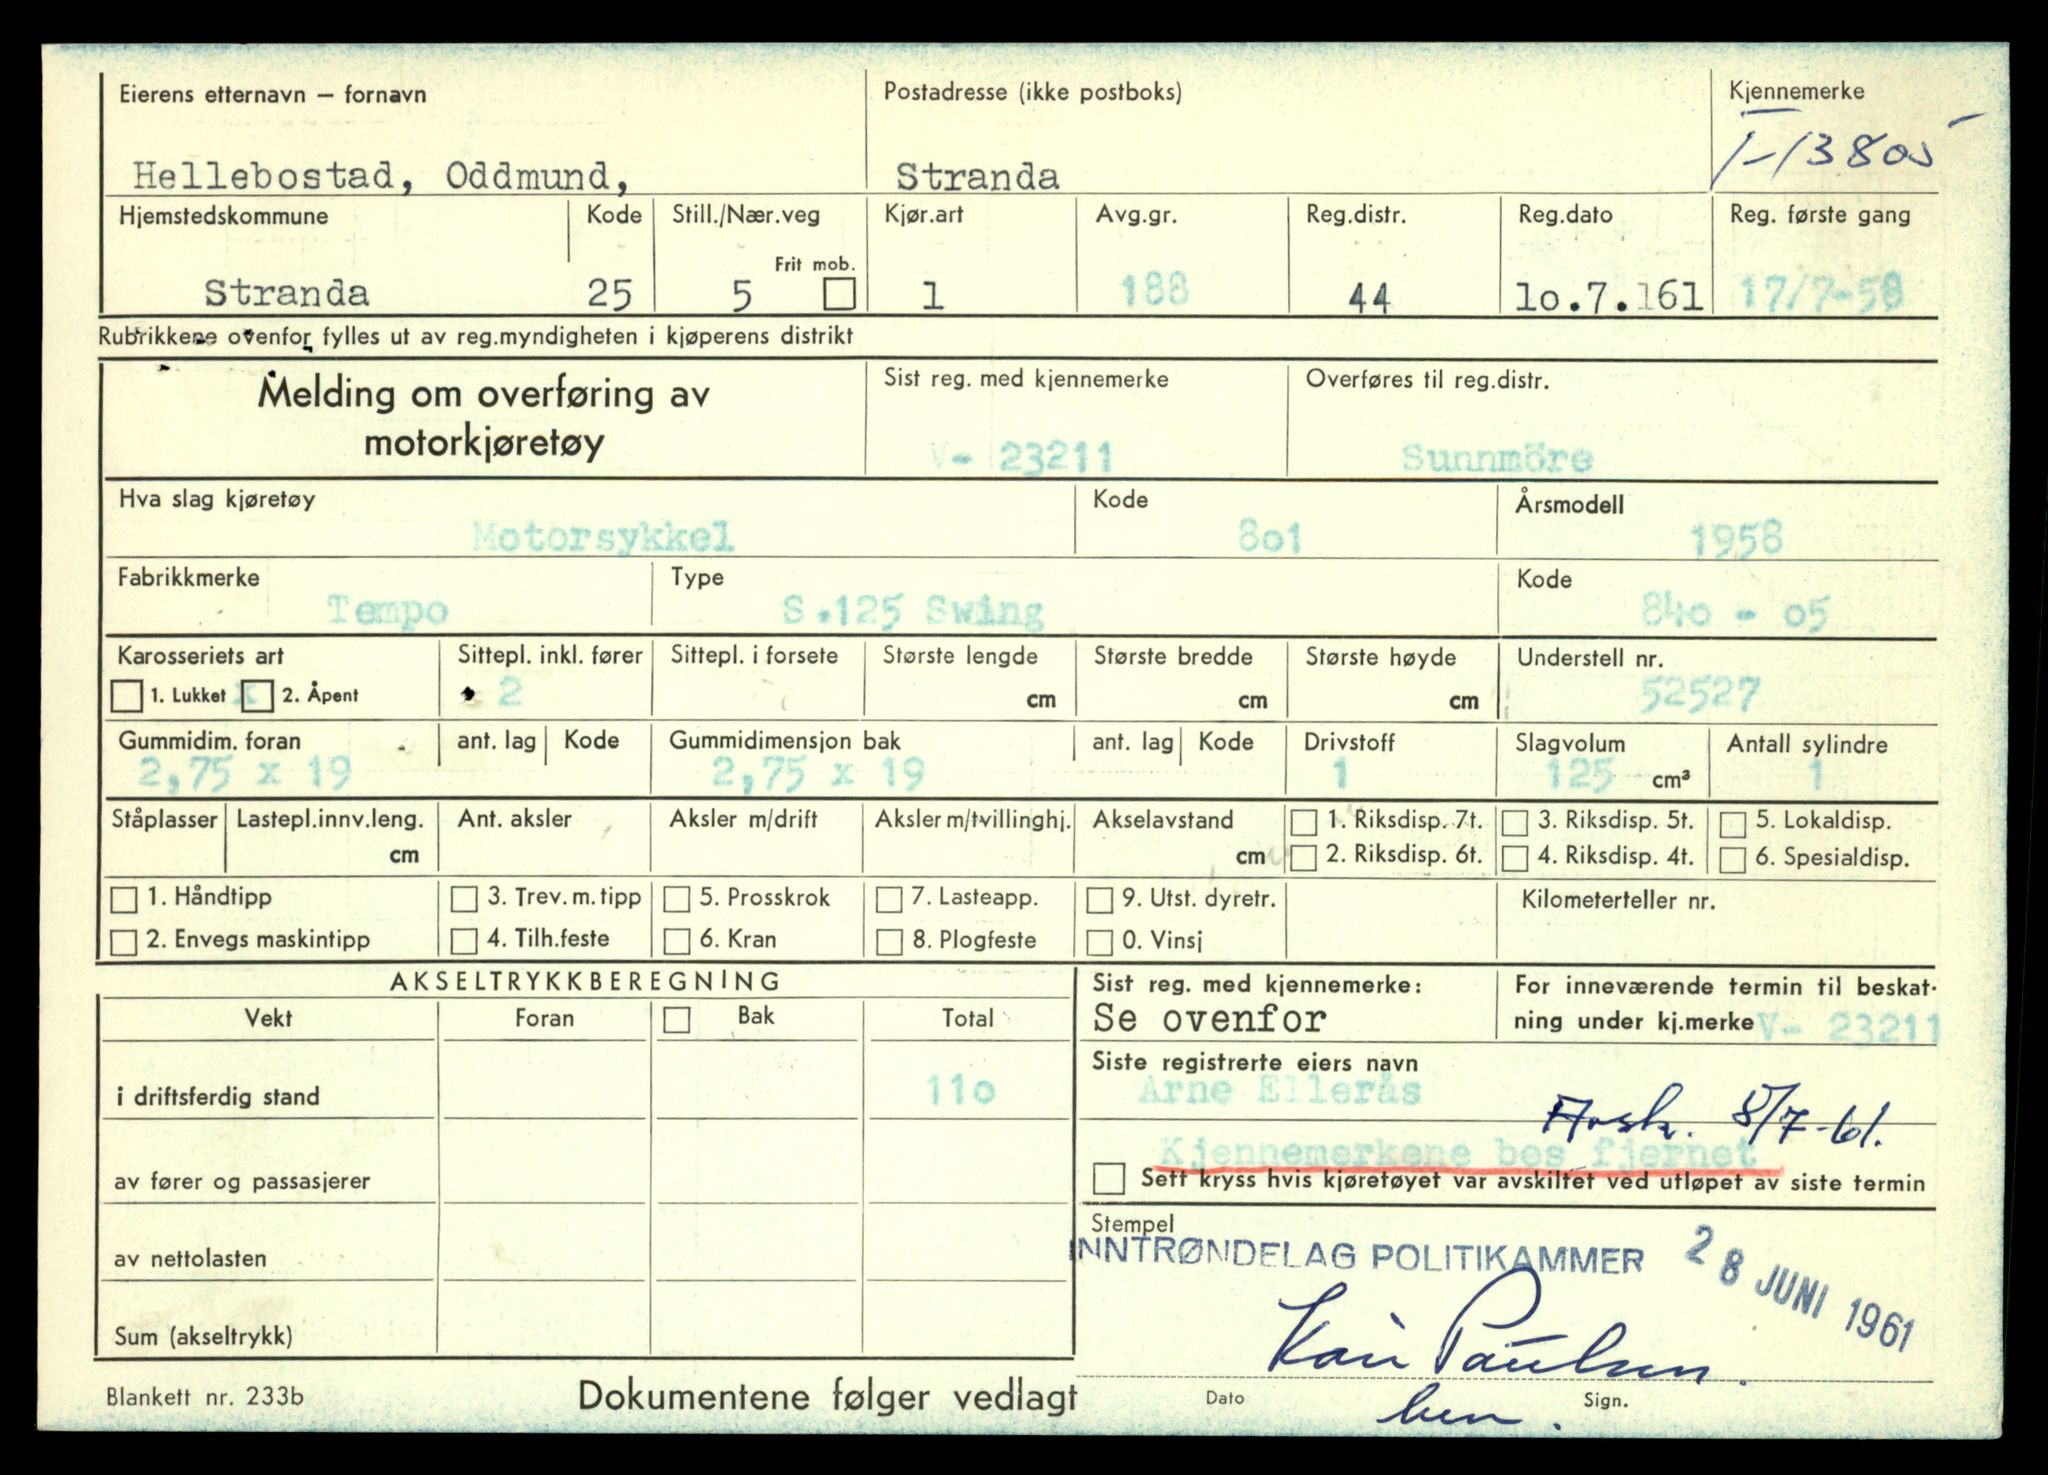 Eierens etternavn – fornavn Postadresse (ikke postboks) Kjennemerke
Hellebostad, Oddmund, Stranda T-13805
Hjemstedskommune Kode Still./Nær.veg Kjør.art Avg.gr. Reg.distr. Reg.dato Reg. første gang
Frit mob.
Stranda 25 5 1 188 44 lo.7.161 17/7-58
Rubrikkene ovenfor fylles ut av reg.myndigheten i kjøperens distrikt
Melding om overføring av Sist reg. med kjennemerke Overføres til reg.distr.
motorkjøretøy V- 23211 Sunnmöre
Hva slag kjøretøy Kode Årsmodell
Motorsykkel 8o1 1958
Fabrikkmerke Type Kode
Tempo S.125 Swing 84o - o5
Karosseriets art Sittepl. inkl. fører Sittepl. i forsete Største lengde Største bredde Største høyde Understell nr.
1. Lukket x 2. Åpent 2 cm cm cm 52527
Gummidim. foran ant. lag Kode Gummidimensjon bak ant. lag Kode Drivstoff Slagvolum Antall sylindre
2,75 x 19 2,75 x 19 1 125 cm³ 1
Ståplasser Lastepl.innv.leng. Ant. aksler Aksler m/drift Aksler m/tvillinghj. Akselavstand 1. Riksdisp. 7t. 3. Riksdisp. 5t. 5. Lokaldisp.
cm cm 2. Riksdisp. 6t. 4. Riksdisp. 4t. 6. Spesialdisp.
1. Håndtipp 3. Trev. m. tipp 5. Prosskrok 7. Lasteapp. 9. Utst. dyretr. Kilometerteller nr.
2. Envegs maskintipp 4. Tilh.feste 6. Kran 8. Plogfeste 0. Vinsj
AKSELTRYKKBEREGNING Sist reg. med kjennemerke: For inneværende termin til beskat-
Vekt Foran Bak Total Se ovenfor ning under kj.merke V- 23211
Siste registrerte eiers navn
i driftsferdig stand 11o Arne Ellerås
Avsk. 8/7-61.
Kjennemerkene bes fjernet
av fører og passasjerer Sett kryss hvis kjøretøyet var avskiltet ved utløpet av siste termin
Stempel
av nettolasten INNTRØNDELAG POLITIKAMMER 28 JUNI 1961
Sum (akseltrykk) Kari Paulsen.
Blankett nr. 233b Dokumentene følger vedlagt Dato Sign.